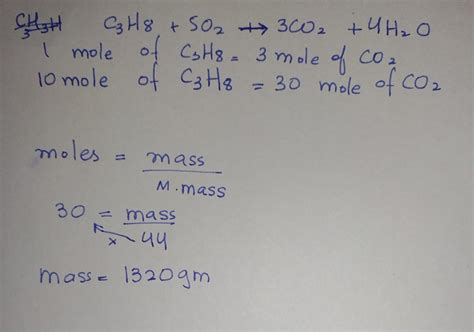 C3H8 + 5O2 → 3CO2 + 4H2O
1 mole of C3H8 = 3 mole of CO2
10 mole of C3H8 = 30 mole of CO2
moles = mass
M.mass
30 = mass
x 44
mass = 1320gm